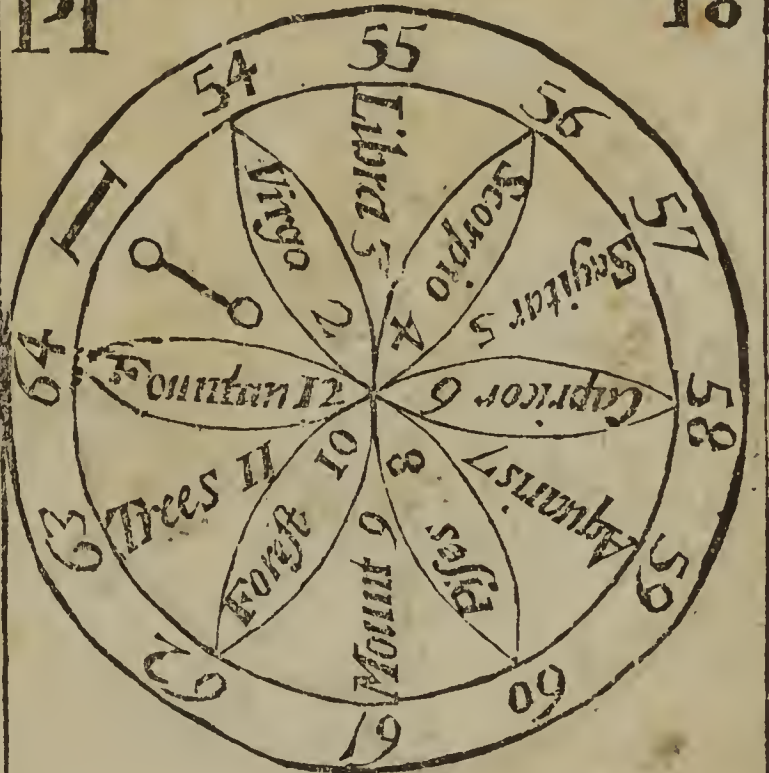 18
I
54
55
56
57
58
59
60
61
62
63
64
Virgo 2
Libra 3
Scorpio 4
Sagitar 5
Capricor 6
Aquaris 7
Piſes 8
Mount 9
Foreſt 10
Trees 11
Fountan 12